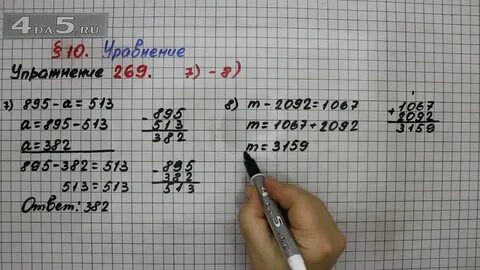 4DA5.RU
§10. Уравнение
Упражнение 269. 7) - 8)
7) 895 - a = 513
a = 895 - 513
a = 382
895 - 382 = 513
513 = 513
Ответ: 382
- 895
513
382
- 895
382
513
8) m - 2092 = 1067
m = 1067 + 2092
m = 3159
1
+ 1067
2092
3159